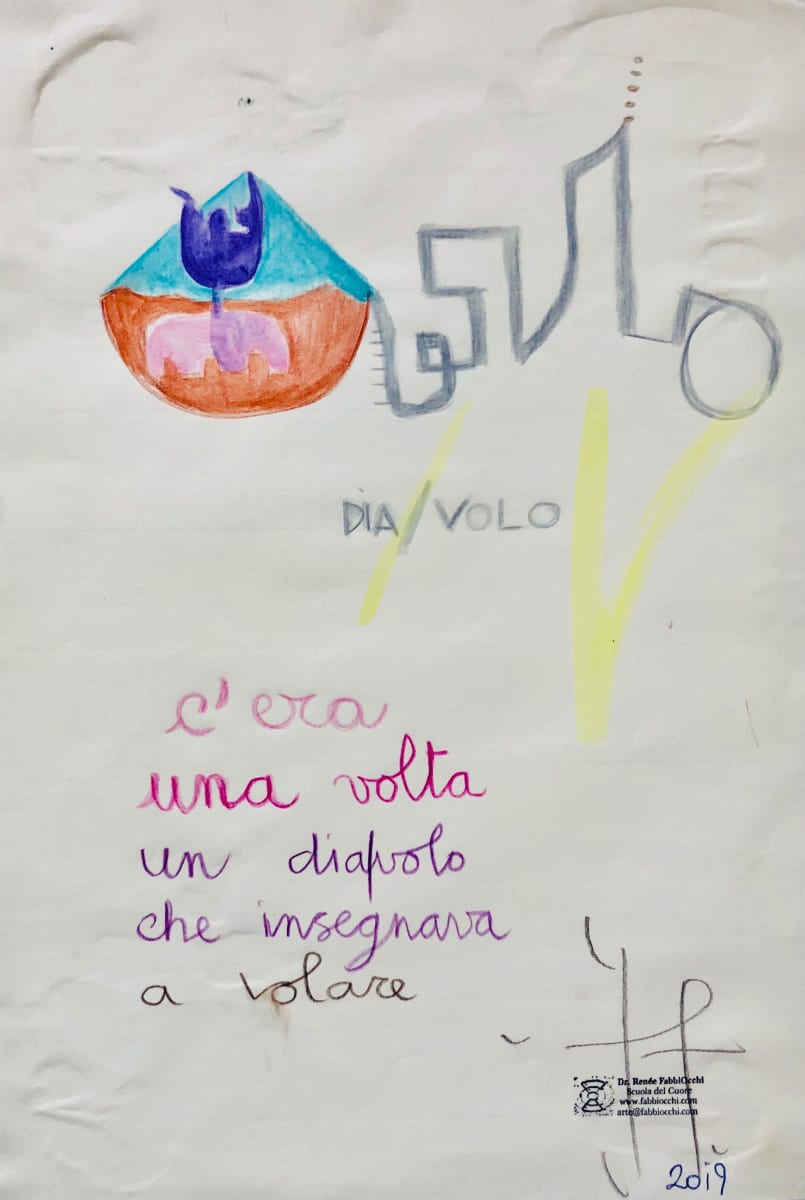 DIA/VOLO
c'era
una volta
un dia/volo
che insegnava
a volare
Dr. Renée FabbiOcchi
Scuola del Cuore
www.fabbiocchi.com
arte@fabbiocchi.com
2019